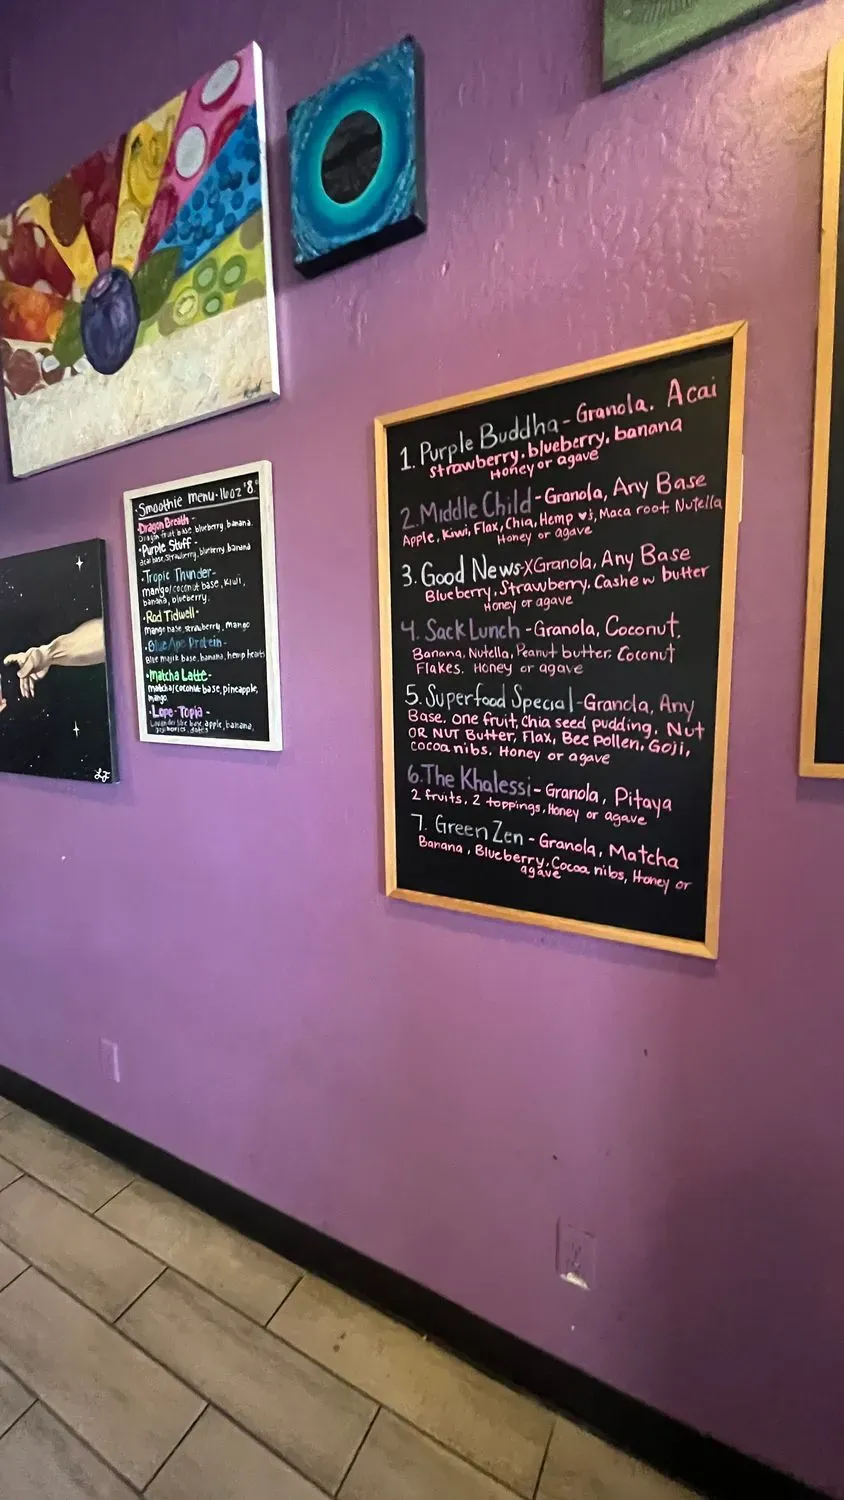 ·Smoothie menu·16oz $8.
·Dragon Breath-
Dragon fruit base, blueberry, banana.
·Purple Stuff-
acai base, strawberry, blueberry, banana
·Tropic Thunder-
mango/coconut base, kiwi,
banana, blueberry.
·Rod Tidwell-
mango base, strawberry, mango
·Blue Ape Protein-
Blue majik base, banana, hemp hearts
·Matcha Latte-
matcha/coconut base, pineapple,
mango
·Lope-Topia-
base, apple, banana,
goji berries, dates
LF
1. Purple Buddha - Granola. Acai
strawberry, blueberry, banana
Honey or agave
2. Middle Child - Granola, Any Base
Apple, Kiwi, Flax, Chia, Hemp ♥s, Maca root Nutella
Honey or agave
3. Good News-XGranola, Any Base
Blueberry, Strawberry, Cashew butter
Honey or agave
4. Sack Lunch - Granola, Coconut.
Banana, Nutella, Peanut butter, Coconut
Flakes. Honey or agave
5. Superfood Special - Granola, Any
Base. one fruit, chia seed pudding, Nut
OR NUT Butter, Flax, Bee Pollen, Goji,
cocoa nibs. Honey or agave
6. The Khalessi - Granola, Pitaya
2 fruits, 2 toppings, Honey or agave
7. Green Zen - Granola, Matcha
Banana, Blueberry, Cocoa nibs, Honey or
agave